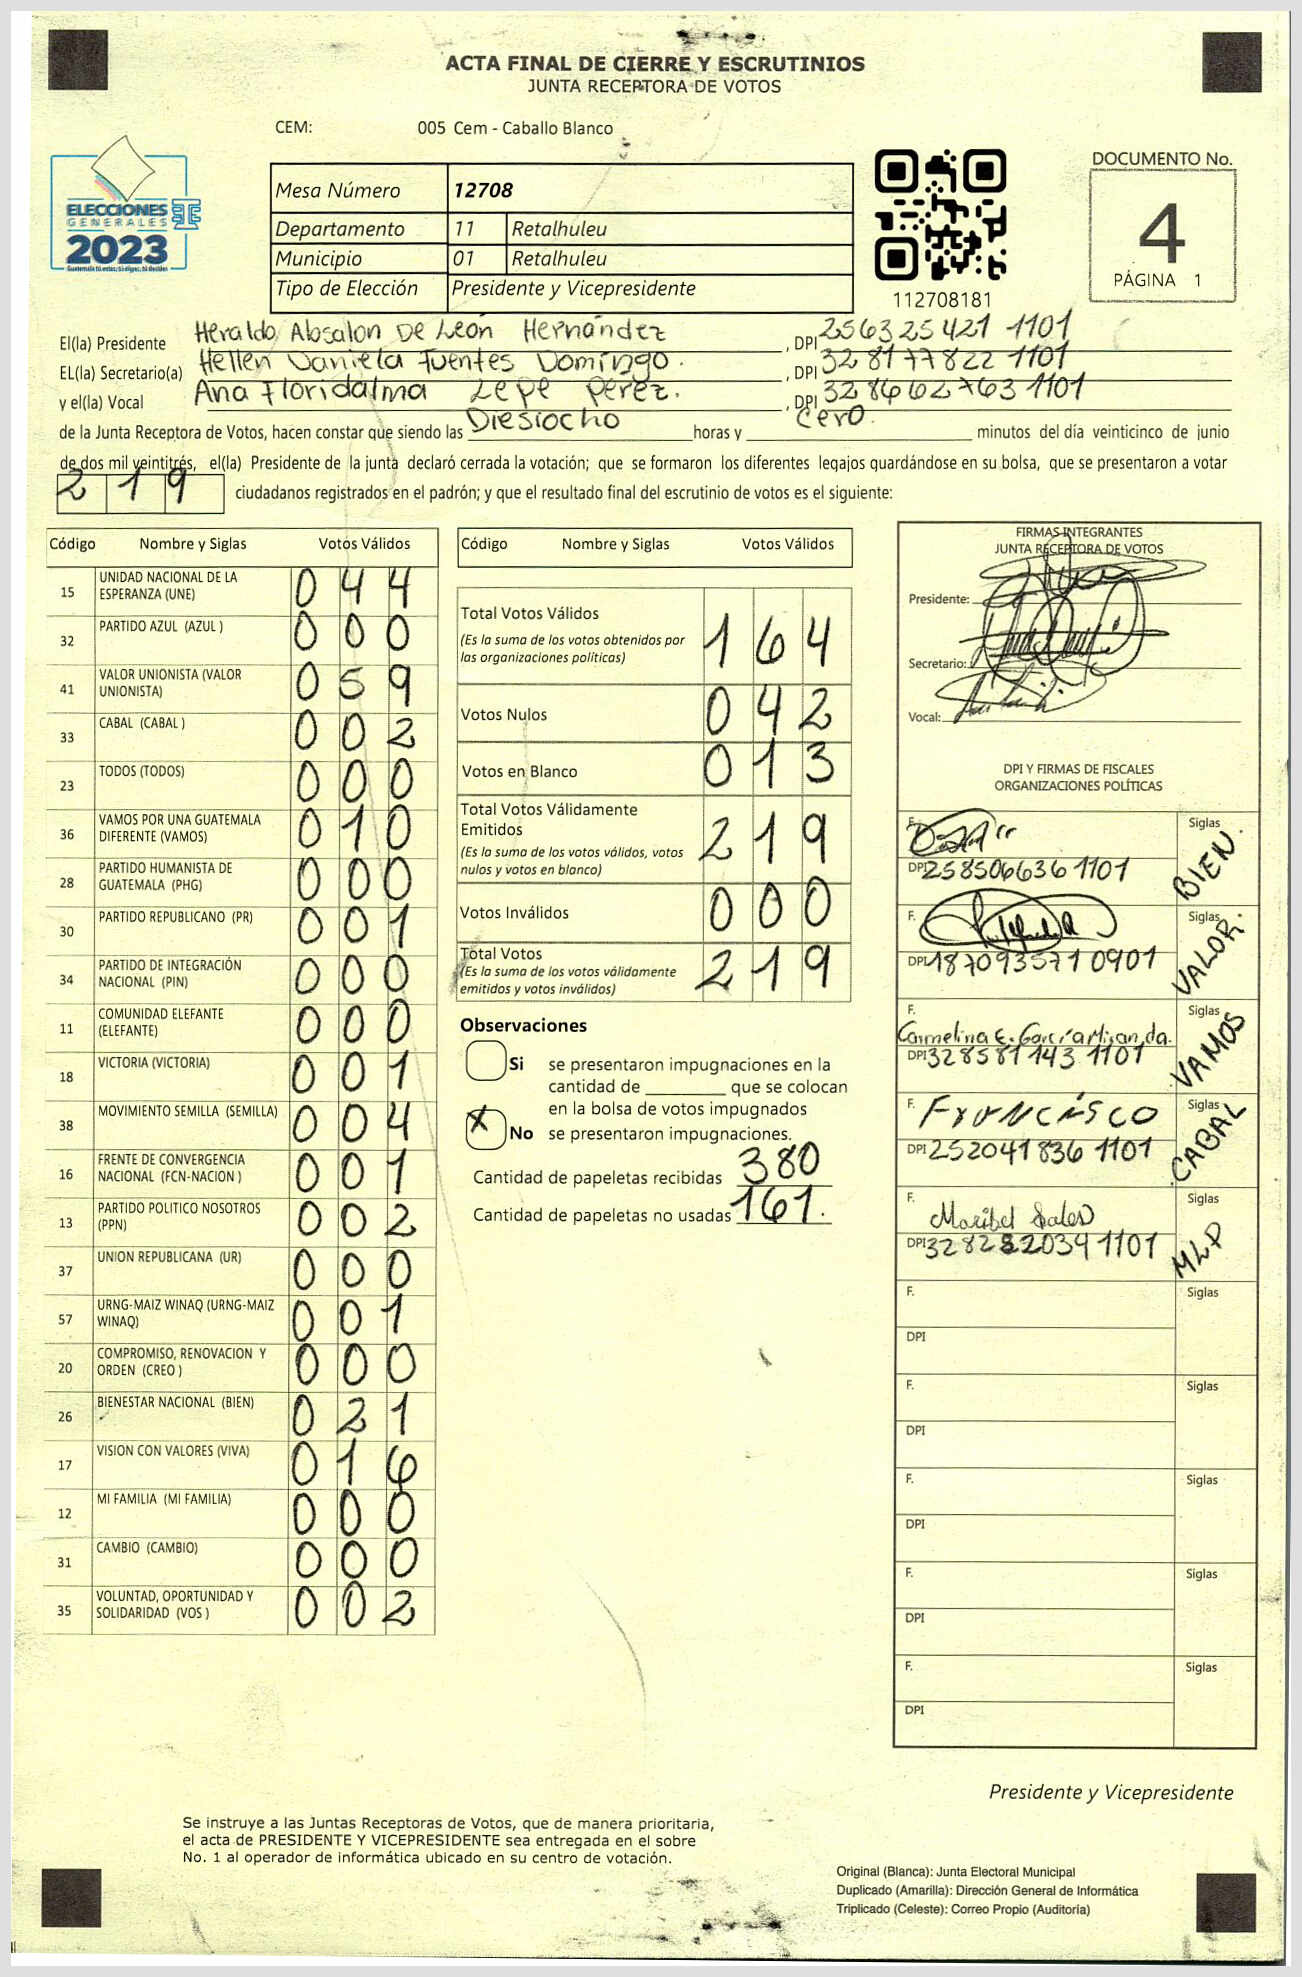 ACTA FINAL DE CIERRE Y ESCRUTINIOS
JUNTA RECEPTORA DE VOTOS
CEM: 005 Cem - Caballo Blanco
ELECCIONES
GENERALES
2023
Guatemala tú eres, tú eliges, tú decides
Mesa Número 12708
Departamento 11 Retalhuleu
Municipio 01 Retalhuleu
Tipo de Elección Presidente y Vicepresidente
112708181
DOCUMENTO No.
4
PÁGINA 1
El(la) Presidente Heraldo Absalon De León Hernández, DPI 256325421 1101
EL(la) Secretario(a) Hellen Daniela Fuentes Domingo., DPI 328177822 1101
y el(la) Vocal Ana Floridalma Lepe Pérez., DPI 328662763 1101
de la Junta Receptora de Votos, hacen constar que siendo las Diesiocho horas y cero. minutos del día veinticinco de junio
de dos mil veintitrés, el(la) Presidente de la junta declaró cerrada la votación; que se formaron los diferentes legajos guardándose en su bolsa, que se presentaron a votar
219 ciudadanos registrados en el padrón; y que el resultado final del escrutinio de votos es el siguiente:
Código Nombre y Siglas Votos Válidos
15 UNIDAD NACIONAL DE LA ESPERANZA (UNE) 044
32 PARTIDO AZUL (AZUL ) 000
41 VALOR UNIONISTA (VALOR UNIONISTA) 059
33 CABAL (CABAL ) 002
23 TODOS (TODOS) 000
36 VAMOS POR UNA GUATEMALA DIFERENTE (VAMOS) 010
28 PARTIDO HUMANISTA DE GUATEMALA (PHG) 000
30 PARTIDO REPUBLICANO (PR) 001
34 PARTIDO DE INTEGRACIÓN NACIONAL (PIN) 000
11 COMUNIDAD ELEFANTE (ELEFANTE) 000
18 VICTORIA (VICTORIA) 001
38 MOVIMIENTO SEMILLA (SEMILLA) 004
16 FRENTE DE CONVERGENCIA NACIONAL (FCN-NACION ) 001
13 PARTIDO POLITICO NOSOTROS (PPN) 002
37 UNION REPUBLICANA (UR) 000
57 URNG-MAIZ WINAQ (URNG-MAIZ WINAQ) 001
20 COMPROMISO, RENOVACION Y ORDEN (CREO ) 000
26 BIENESTAR NACIONAL (BIEN) 021
17 VISION CON VALORES (VIVA) 016
12 MI FAMILIA (MI FAMILIA) 000
31 CAMBIO (CAMBIO) 000
35 VOLUNTAD, OPORTUNIDAD Y SOLIDARIDAD (VOS ) 002
Código Nombre y Siglas Votos Válidos
Total Votos Válidos 164
(Es la suma de los votos obtenidos por
las organizaciones políticas)
Votos Nulos 042
Votos en Blanco 013
Total Votos Válidamente
Emitidos 219
(Es la suma de los votos válidos, votos
nulos y votos en blanco)
Votos Inválidos 000
Total Votos 219
(Es la suma de los votos válidamente
emitidos y votos inválidos)
Observaciones
Si se presentaron impugnaciones en la
cantidad de ________ que se colocan
en la bolsa de votos impugnados
X No se presentaron impugnaciones.
Cantidad de papeletas recibidas 380
Cantidad de papeletas no usadas 161.
FIRMAS INTEGRANTES
JUNTA RECEPTORA DE VOTOS
Presidente:
Secretario:
Vocal:
DPI Y FIRMAS DE FISCALES
ORGANIZACIONES POLÍTICAS
F. Siglas BIEN.
DPI 258506636 1101
F. Siglas VALOR.
DPI 187093571 0901
F. Carmelina E. García Miranda. Siglas VAMOS
DPI 328581143 1101
F. Francisco Siglas CABAL
DPI 252041836 1101
F. Maribel Sales Siglas MLP
DPI 328282039 1101
F. Siglas
DPI
F. Siglas
DPI
F. Siglas
DPI
F. Siglas
DPI
F. Siglas
DPI
Presidente y Vicepresidente
Se instruye a las Juntas Receptoras de Votos, que de manera prioritaria,
el acta de PRESIDENTE Y VICEPRESIDENTE sea entregada en el sobre
No. 1 al operador de informática ubicado en su centro de votación.
Original (Blanca): Junta Electoral Municipal
Duplicado (Amarilla): Dirección General de Informática
Triplicado (Celeste): Correo Propio (Auditoría)